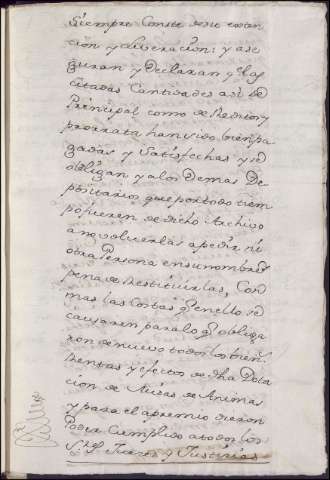 Siempre Conste de su exstin
cion y aliberacion: y ase
guran y Declaran q.e las
citadas Cantidades asi de
Principal como de Reditos y
prorrata han sido bien pa
gadas y Satisfechas y se
obligan y alos Demas De
positarios que por todo tiem
po fueren de dicho Archivo
ano volverlas apedir ni
otra Persona en su nombre
pena de Restituirlas, Con
mas las Costas q.e en ello se
causaren para lo q.e obliga
ron de nuevo todos los bienes
Rentas y efectos de dha Dota
cion de Misas de Animas
y para el apremio dieron
Poder Cumplido atodos los
S.res Jueces y Justicias